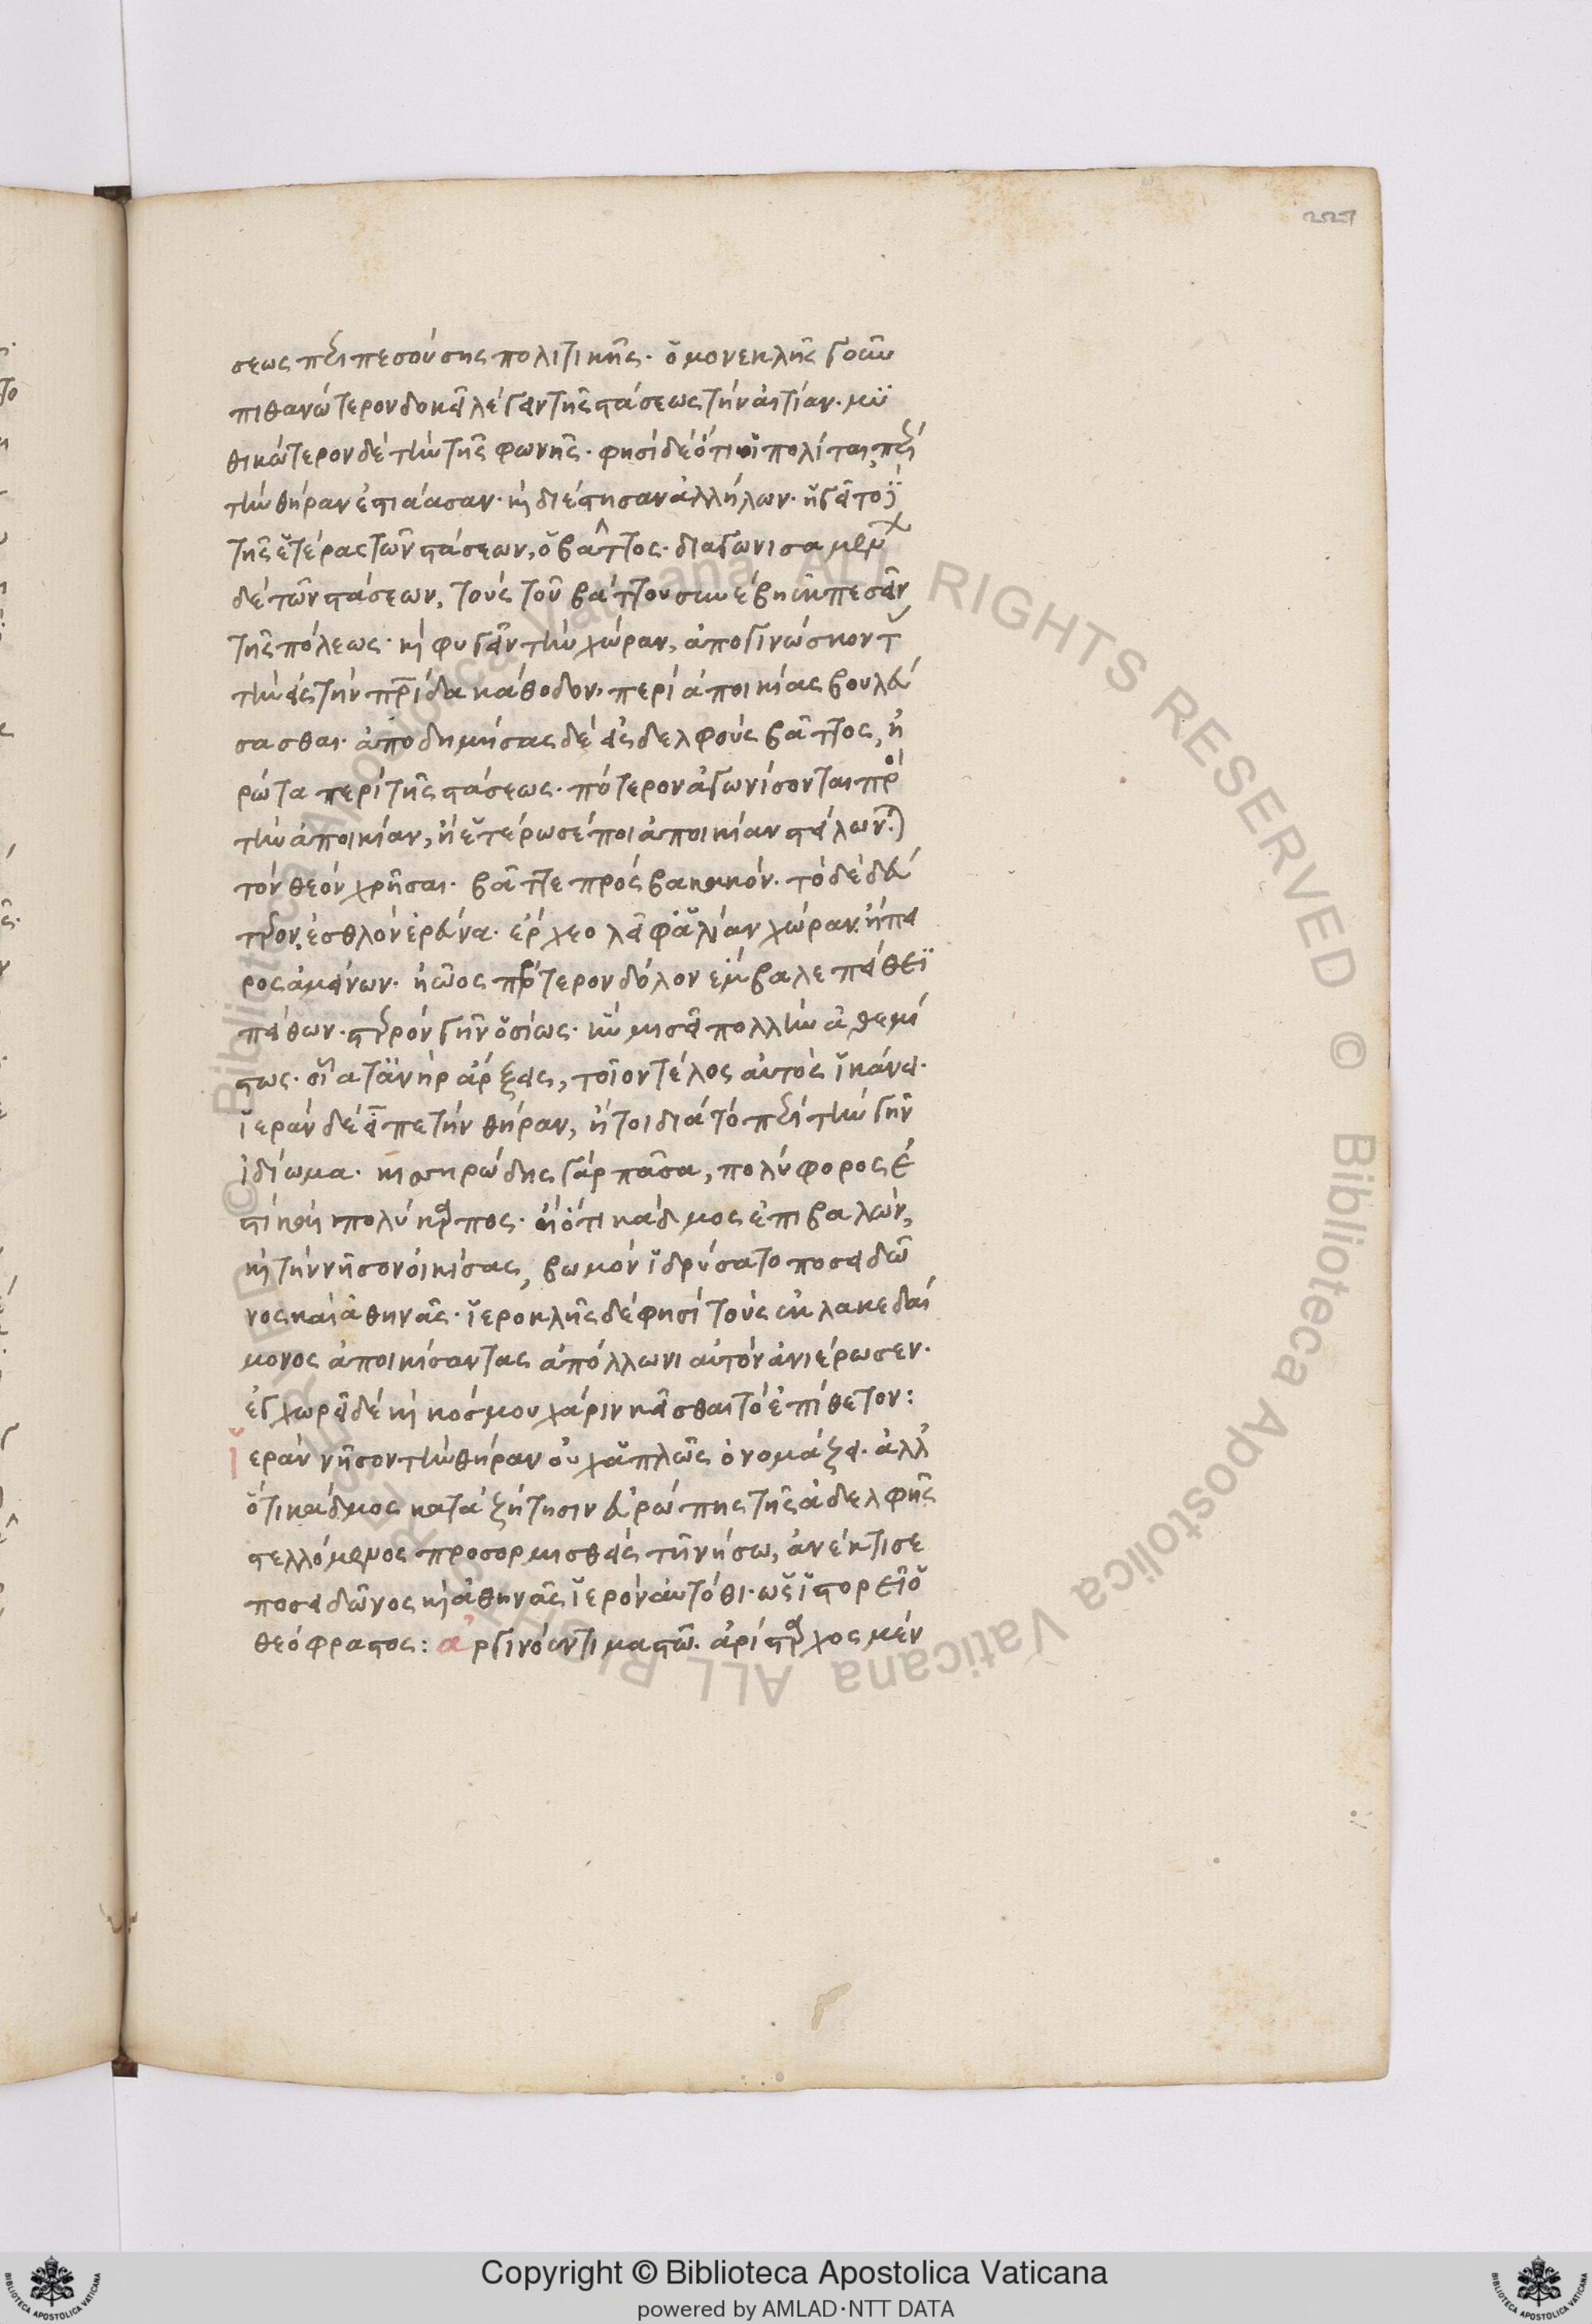 252r
σεως περιπεσούσης πολιτικῆς. ὁ μονεκλῆς γοῦν
πιθανώτερον δοκεῖ λέγειν τῆς στάσεως τὴν αἰτίαν. μυ
θικώτερον δὲ τὴν τῆς φωνῆς. φησὶ δὲ ὅτι οἱ πολῖται περὶ
τὴν θήραν ἐστίασαν. καὶ διέστησαν ἀλλήλων. ἡγεῖτο
τῆς ἑτέρας τῶν στάσεων, ὁ βάττος. διαγωνισαμένων
δὲ τῶν στάσεων, τοὺς τοῦ βάττου συνέβη ἐκπεσεῖν
τῆς πόλεως. καὶ φυγεῖν τὴν χώραν, ἀπογινώσκοντ
τὴν εἰς τὴν πρίδα κάθοδον. περὶ ἀποικίας βουλεύ
σασθαι. ἀποδημήσας δὲ εἰς δελφοὺς βάττος, ἠ
ρώτα περὶ τῆς στάσεως. πότερον ἀγωνίσονται πρὸ
τὴν ἀποικίαν, ἢ ἑτέρωσέ ποι ἀποικίαν στείλων.
τὸν θεὸν χρῆσαι. βάττε πρὸς κακόν. τὸ δὲ δεύ
τερον ἐσθλὸν ἐρεύνα. ἔρχεο χώραν ἤπει
ρος ἀμείνων. ἠῷος πρότερον δόλον ἔμβαλε πείθεϊ
πείθων. γῆν ὁσίως. ἀθεμί
στως. οἷα τ᾽ ἀνὴρ ἄρξεις, τοῖον τέλος αὐτὸς ἱκάνει.
ἱερὰν δὲ εἶπε τὴν θήραν, ἤτοι διὰ τὸ περὶ τὴν γῆν
ἰδίωμα. κισηρώδης γὰρ πᾶσα, πολύφορος ἐ
στὶ καὶ πολύκαρπος. ἢ ὅτι κάδμος ἐπιβαλών,
καὶ τὴν νῆσον οἰκίσας, βωμὸν ἱδρύσατο ποσειδῶ
νος καὶ ἀθηνᾶς. ἱεροκλῆς δέ φησι τοὺς ἐκ λακεδαί
μονος ἀποικίσαντας ἀπόλλωνι αὐτὸν ἀνιέρωσεν.
ἐγχωρεῖ δὲ καὶ κόσμου χάριν κεῖσθαι τὸ ἐπίθετον:
ἱερὰν νῆσον τὴν θήραν οὐχ ἁπλῶς ὀνομάζει. ἀλλ᾽
ὅτι κάδμος κατὰ ζήτησιν εὐρώπης τῆς ἀδελφῆς
στελλόμενος προσορμισθεὶς τῇ νήσω, ἀνέκτισε
ποσειδῶνος καὶ ἀθηνᾶς ἱερὸν αὐτόθι. ὡς ἱστορεῖ ὁ
θεόφραστος: ἀργινόεντι μαστῶ. ἀρίσταρχος μὲν
Copyright © Biblioteca Apostolica Vaticana
powered by AMLAD·NTT DATA